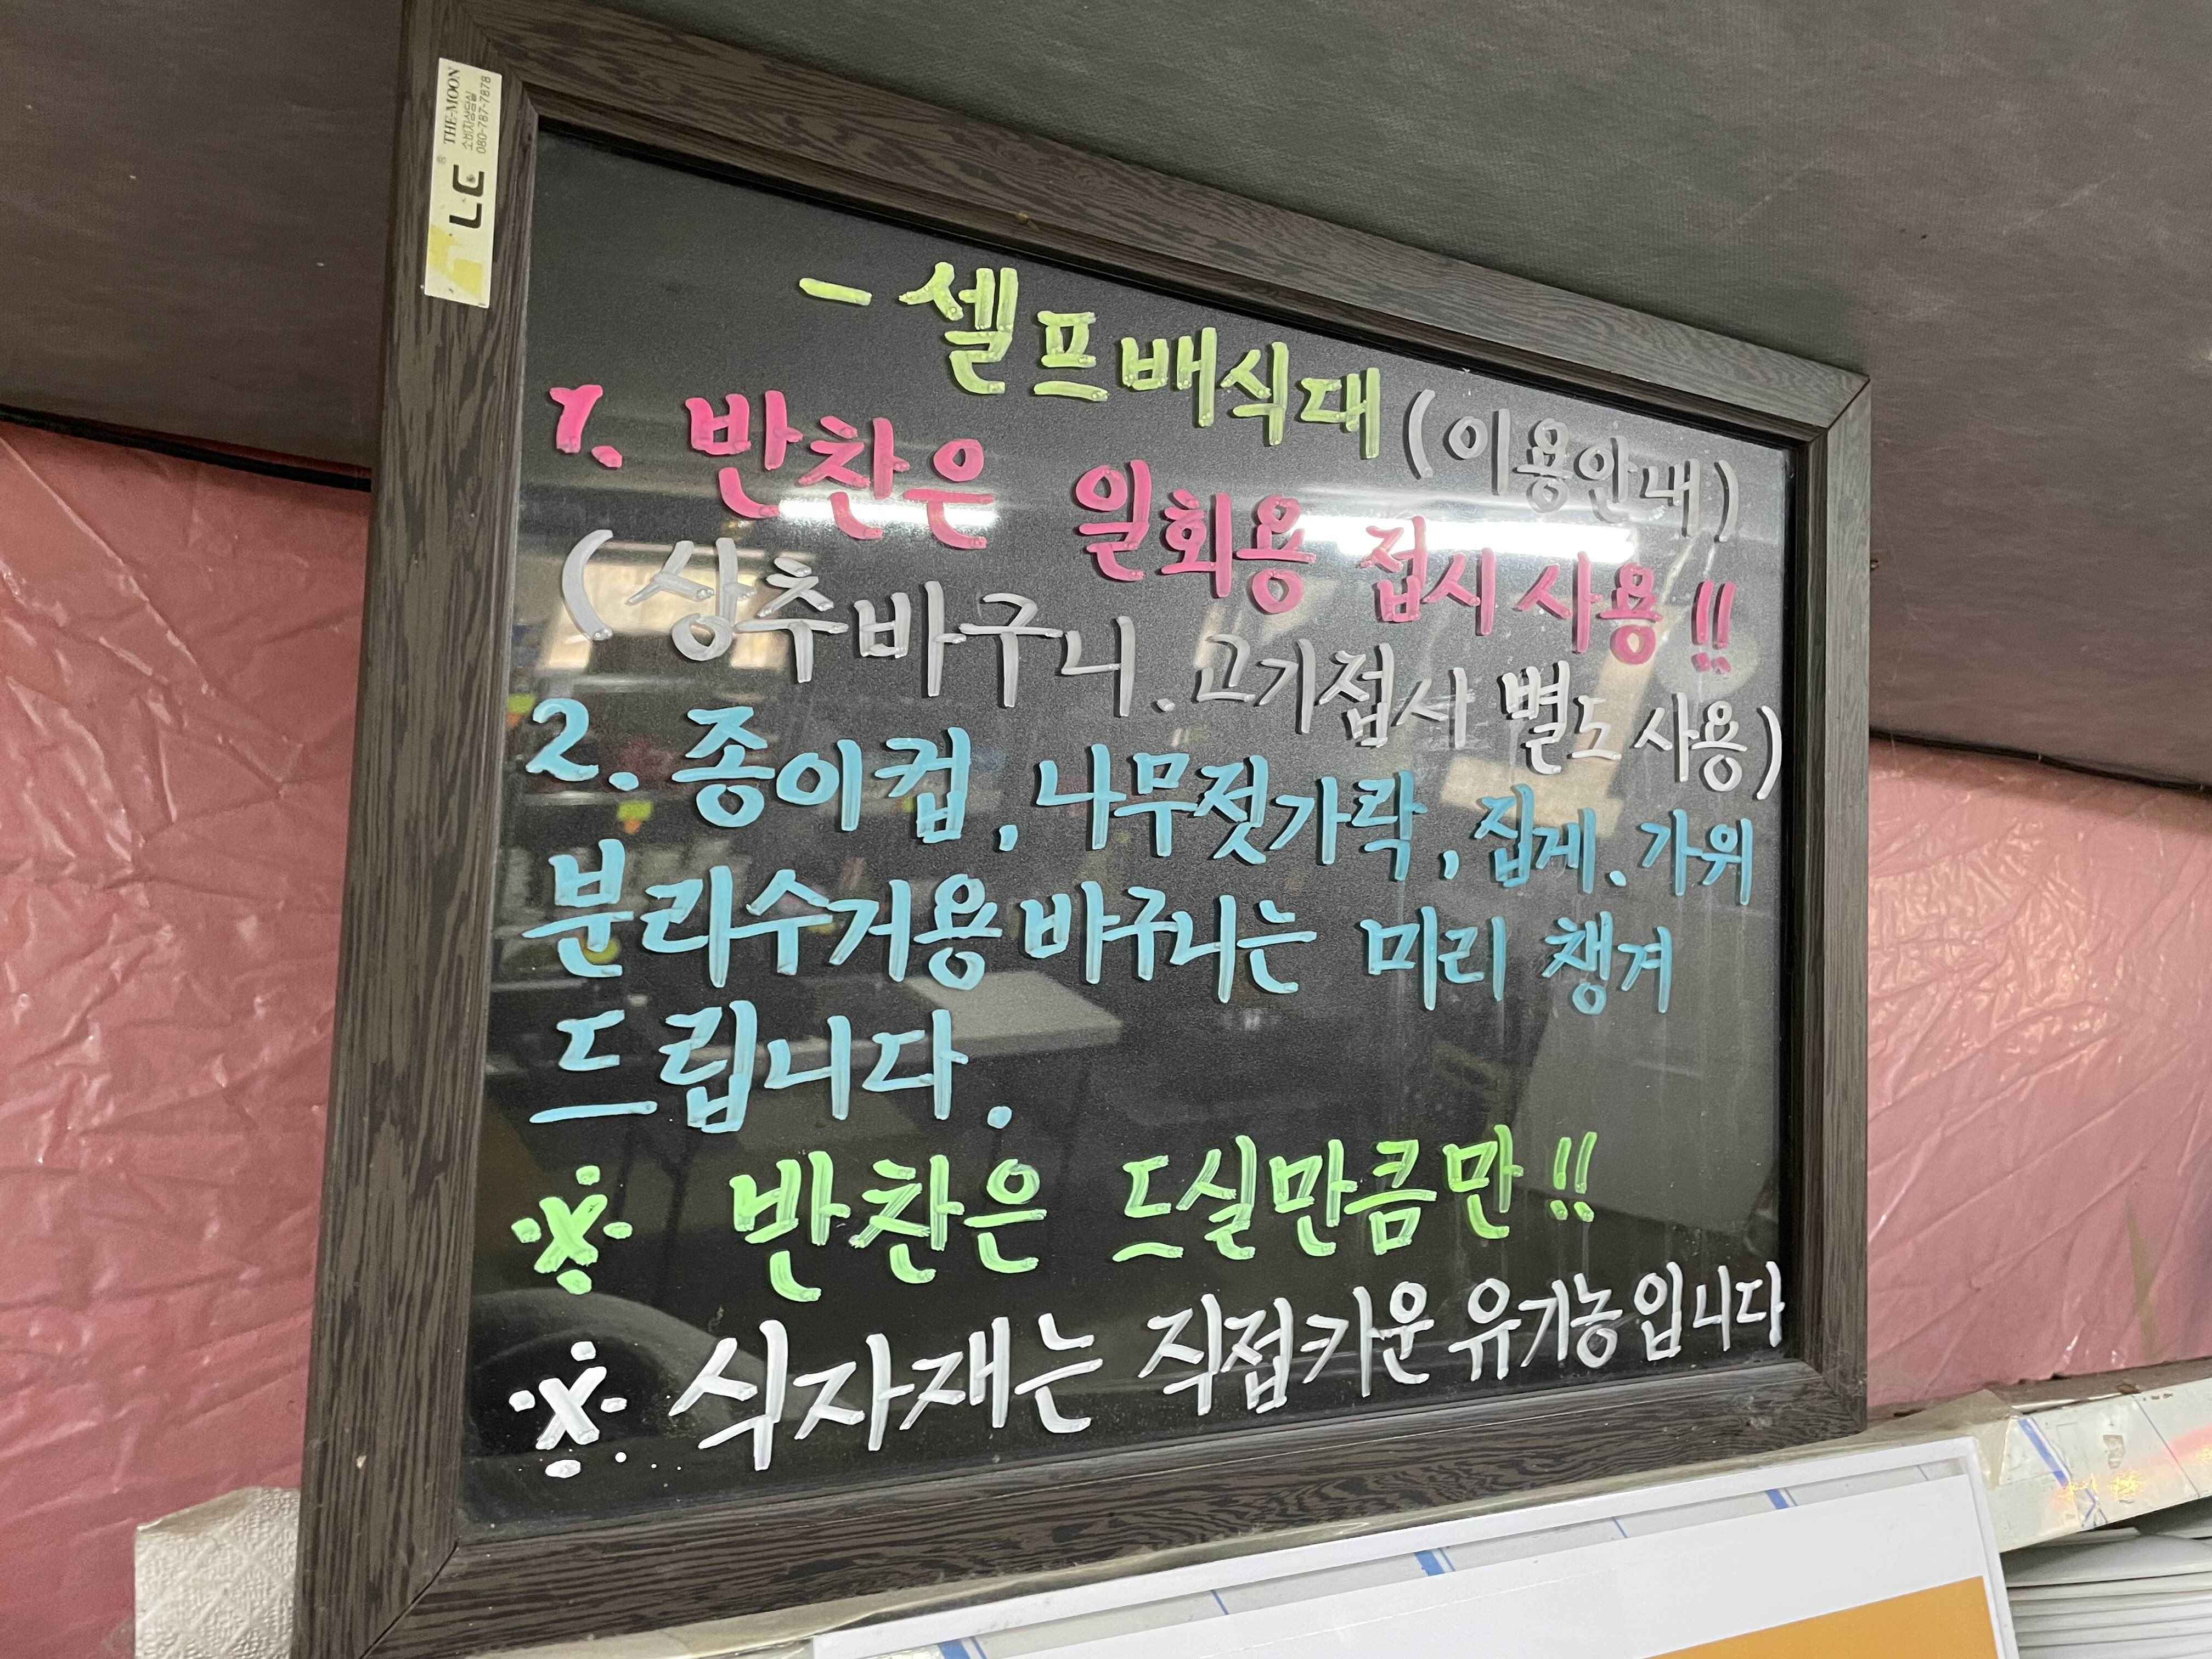 THE-MOON
소비자상담실
080-787-7878
- 셀프배식대 (이용안내)
1. 반찬은 일회용 접시 사용!!
(상추바구니. 고기접시 별도 사용)
2. 종이컵, 나무젓가락, 집게. 가위
분리수거용 바구니는 미리 챙겨
드립니다.
※ 반찬은 드실만큼만!!
※ 식자재는 직접키운 유기농입니다